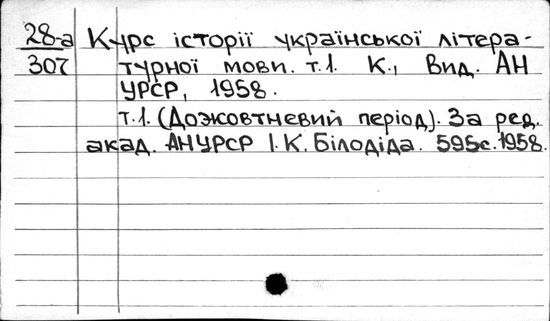 28-а Курс історії української літера-
307 турної мови. т.1. К., Вид. АН
УРСР, 1958.
т.1. (Дожовтневий період). За ред.
акад. АН УРСР І.К. Білодіда. 595с. 1958.